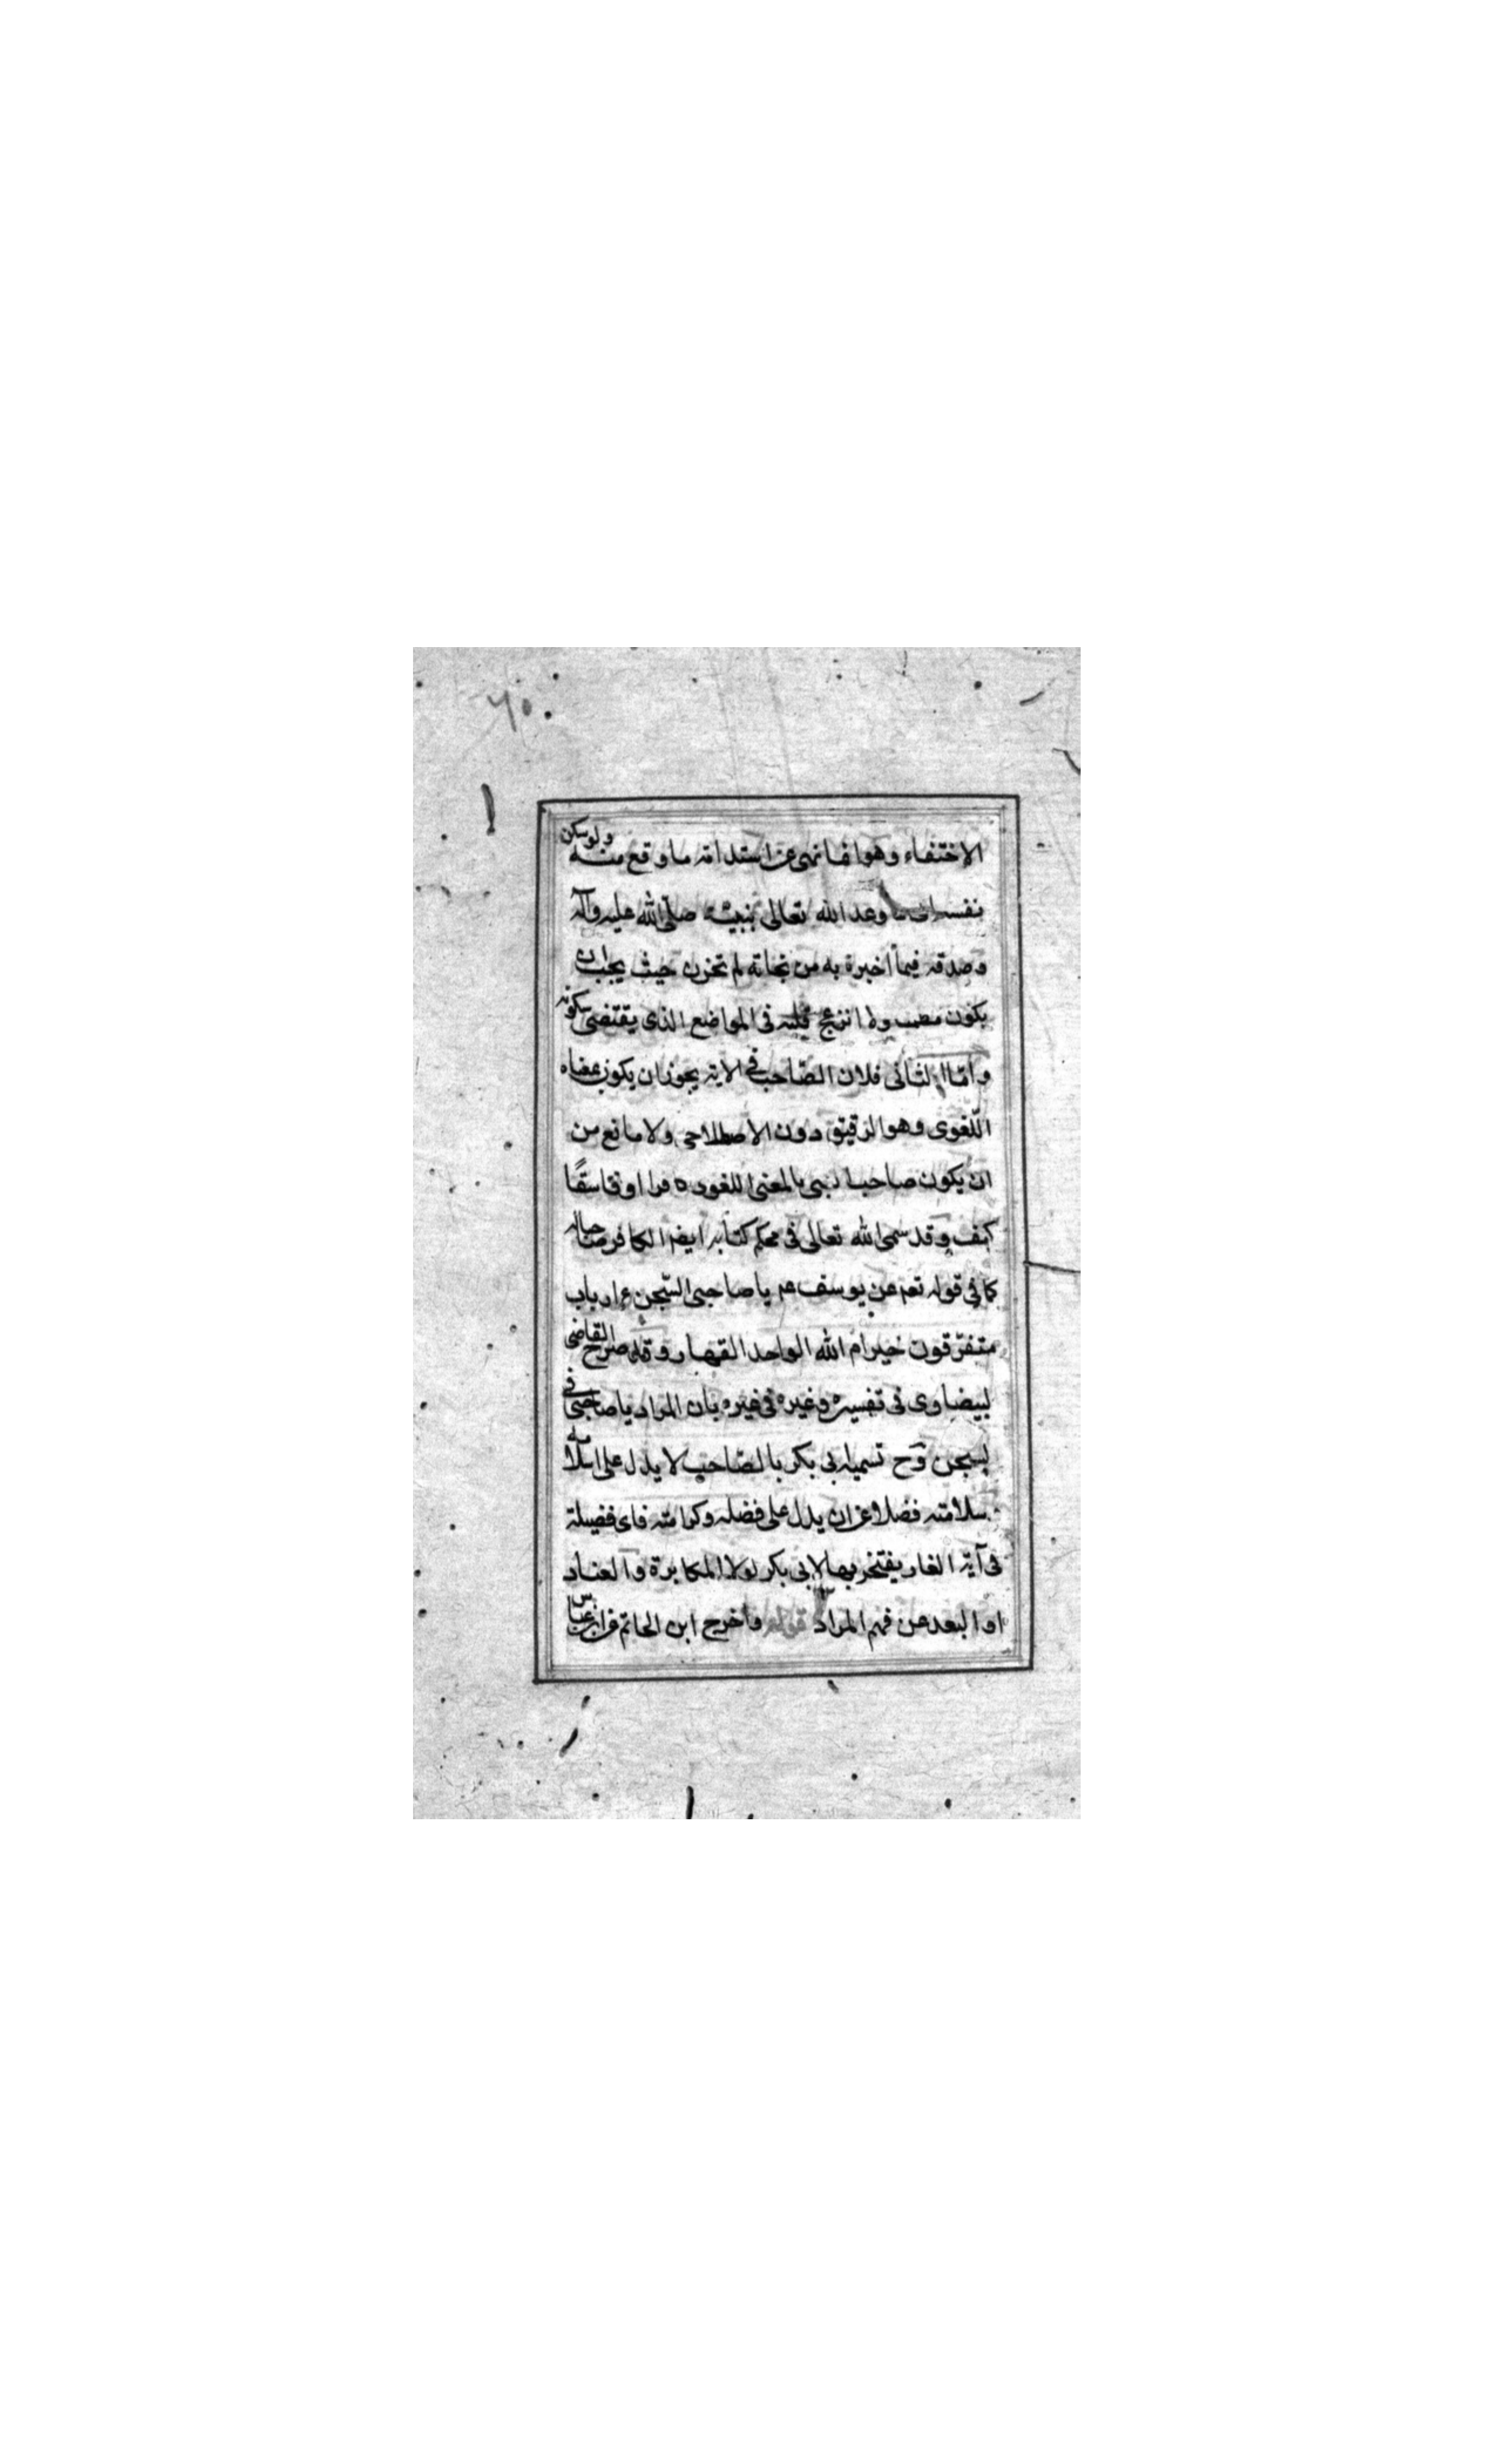 ٦٥
الاختفاء وهو انما نهى عن استدامة ما وقع منه ولو سكن
نفسه الى ما وعد الله تعالى نبيه صلى الله عليه وآله
وصدقه فيما أخبره به من نجاته لم تحزن حيث يجب ان
يكون ولا انزعج قلبه فى المواضع الذى يقتضى سكونه
وأمّا الثانى فلان الصّاحب فى الاية يجوز ان يكون بمعناه
اللّغوى وهو الرفيق دون الاصطلاحى ولا مانع من
ان يكون صاحب النبى بالمعنى اللغوى او فاسقًا
كيف وقد سمى الله تعالى فى محكم كتابه ايضا الكافر صاحبا
كما فى قوله تعم عن يوسف عم يا صاحبى السّجن ءارباب
متفرّقون خير ام الله الواحد القهار وقد صرح القاضى
لبيضاوى فى تفسيره وغيره فى غيره بان المراد يا صاحبى فى
لسجن وح تسمية ابى بكر بالصّاحب لا يدل على اسلامه
سلامته فضلا عن ان يدل على فضله وكرامته فاى فضيلة
فى آية الغار يفتخر بها لابى بكر لولا المكابرة والعناد
او البعد عن فهم المراد قوله واخرج ابن الحاتم عن ابن عباس